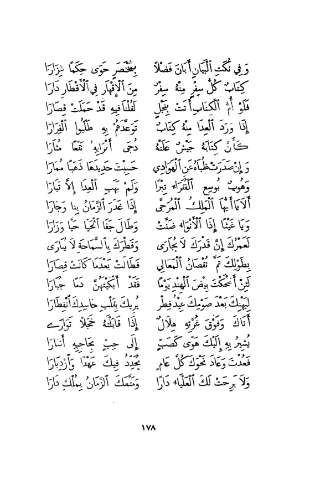 وَفِي نُكَتِ الْبَيَانِ أَبَانَ فَضْلًا بِمُخْتَصَرٍ حَوَى حِكَمًا غِزَارَا
كِتَابٌ كُلُّ سِفْرٍ مِنْهُ سِفْرٌ مِنَ الْأَقْمَارِ فِي الْأَقْطَارِ دَارَا
فَلَوْ أُمُّ الْكِتَابِ أَتَتْ بِنَجْلٍ لَقُلْنَا فِيهِ قَدْ حَمَلَتْ
إِذَا وَرَدَ الْعِدَا مِنْهُ كِتَابٌ تَوَعَّدَهُمْ بِهِ طَلَبُوا الْفِرَارَا
كَأَنَّ كِتَابَهُ جَيْشٌ عَلَيْهِ دُجَى
وَإِنْ صَدَرَتْ ظُبَاهُ عَنِ الْهَوَادِي حَسِبْتَ حَدِيدَهَا ذَهَبًا مُمَارَا
وَهُوبٌ يُوسِعُ الْفُقَرَاءَ تِبْرًا وَلَمْ يَهَبِ الْعِدَا إِلَّا تَبَارَا
أَلَا يَا أَيُّهَا الْمَلِكُ الْمُرَجَّى إِذَا غَدَرَ الزَّمَانُ بِنَا وَجَارَا
وَيَا غَيْثًا إِذَا الْأَنْوَاءُ ضَنَّتْ وَطَالَ جَفَا الْحَيَا حَيَّا وَزَارَا
لَعَمْرُكَ إِنَّ قَدْرَكَ لَا يُجَارَى وَقَطْرُكَ بِالسَّمَاحَةِ لَا يُبَارَى
بِطَوْلِكَ تَمَّ نُقْصَانُ الْمَعَالِي فَطَالَتْ بَعْدَمَا كَانَتْ قِصَارَا
لَئِنْ أَضْحَكْتَ بِيضَ الْهِنْدِ يَوْمًا فَقَدْ أَبْكَيْتَهُنَّ دَمًا جُبَارَا
لِيَهْنِكَ بَعْدَ صَوْمِكَ عِيدُ فِطْرٍ يُرِيكَ بِقَلْبِ حَاسِدِكَ انْفِطَارَا
أَتَاكَ وَفَوْقَ غُرَّتِهِ هِلَالٌ إِذَا قَابَلْتَهُ خَجَلًا تَوَارَى
يُشِيرُ بِهِ إِلَيْكَ هَوًى كَصَبٍّ إِلَى حِبٍّ بِحَاجِبِهِ أَشَارَا
فَعُدْتَ وَعَادَ نَحْوَكَ كُلَّ عَامٍ يُجَدِّدُ فِيكَ عَهْدًا وَازْدِيَارَا
وَلَا بَرِحَتْ لَكَ الْعَلْيَاءُ دَارًا وَمَتَّعَكَ الزَّمَانُ بِمُلْكِ دَارَا
١٧٨